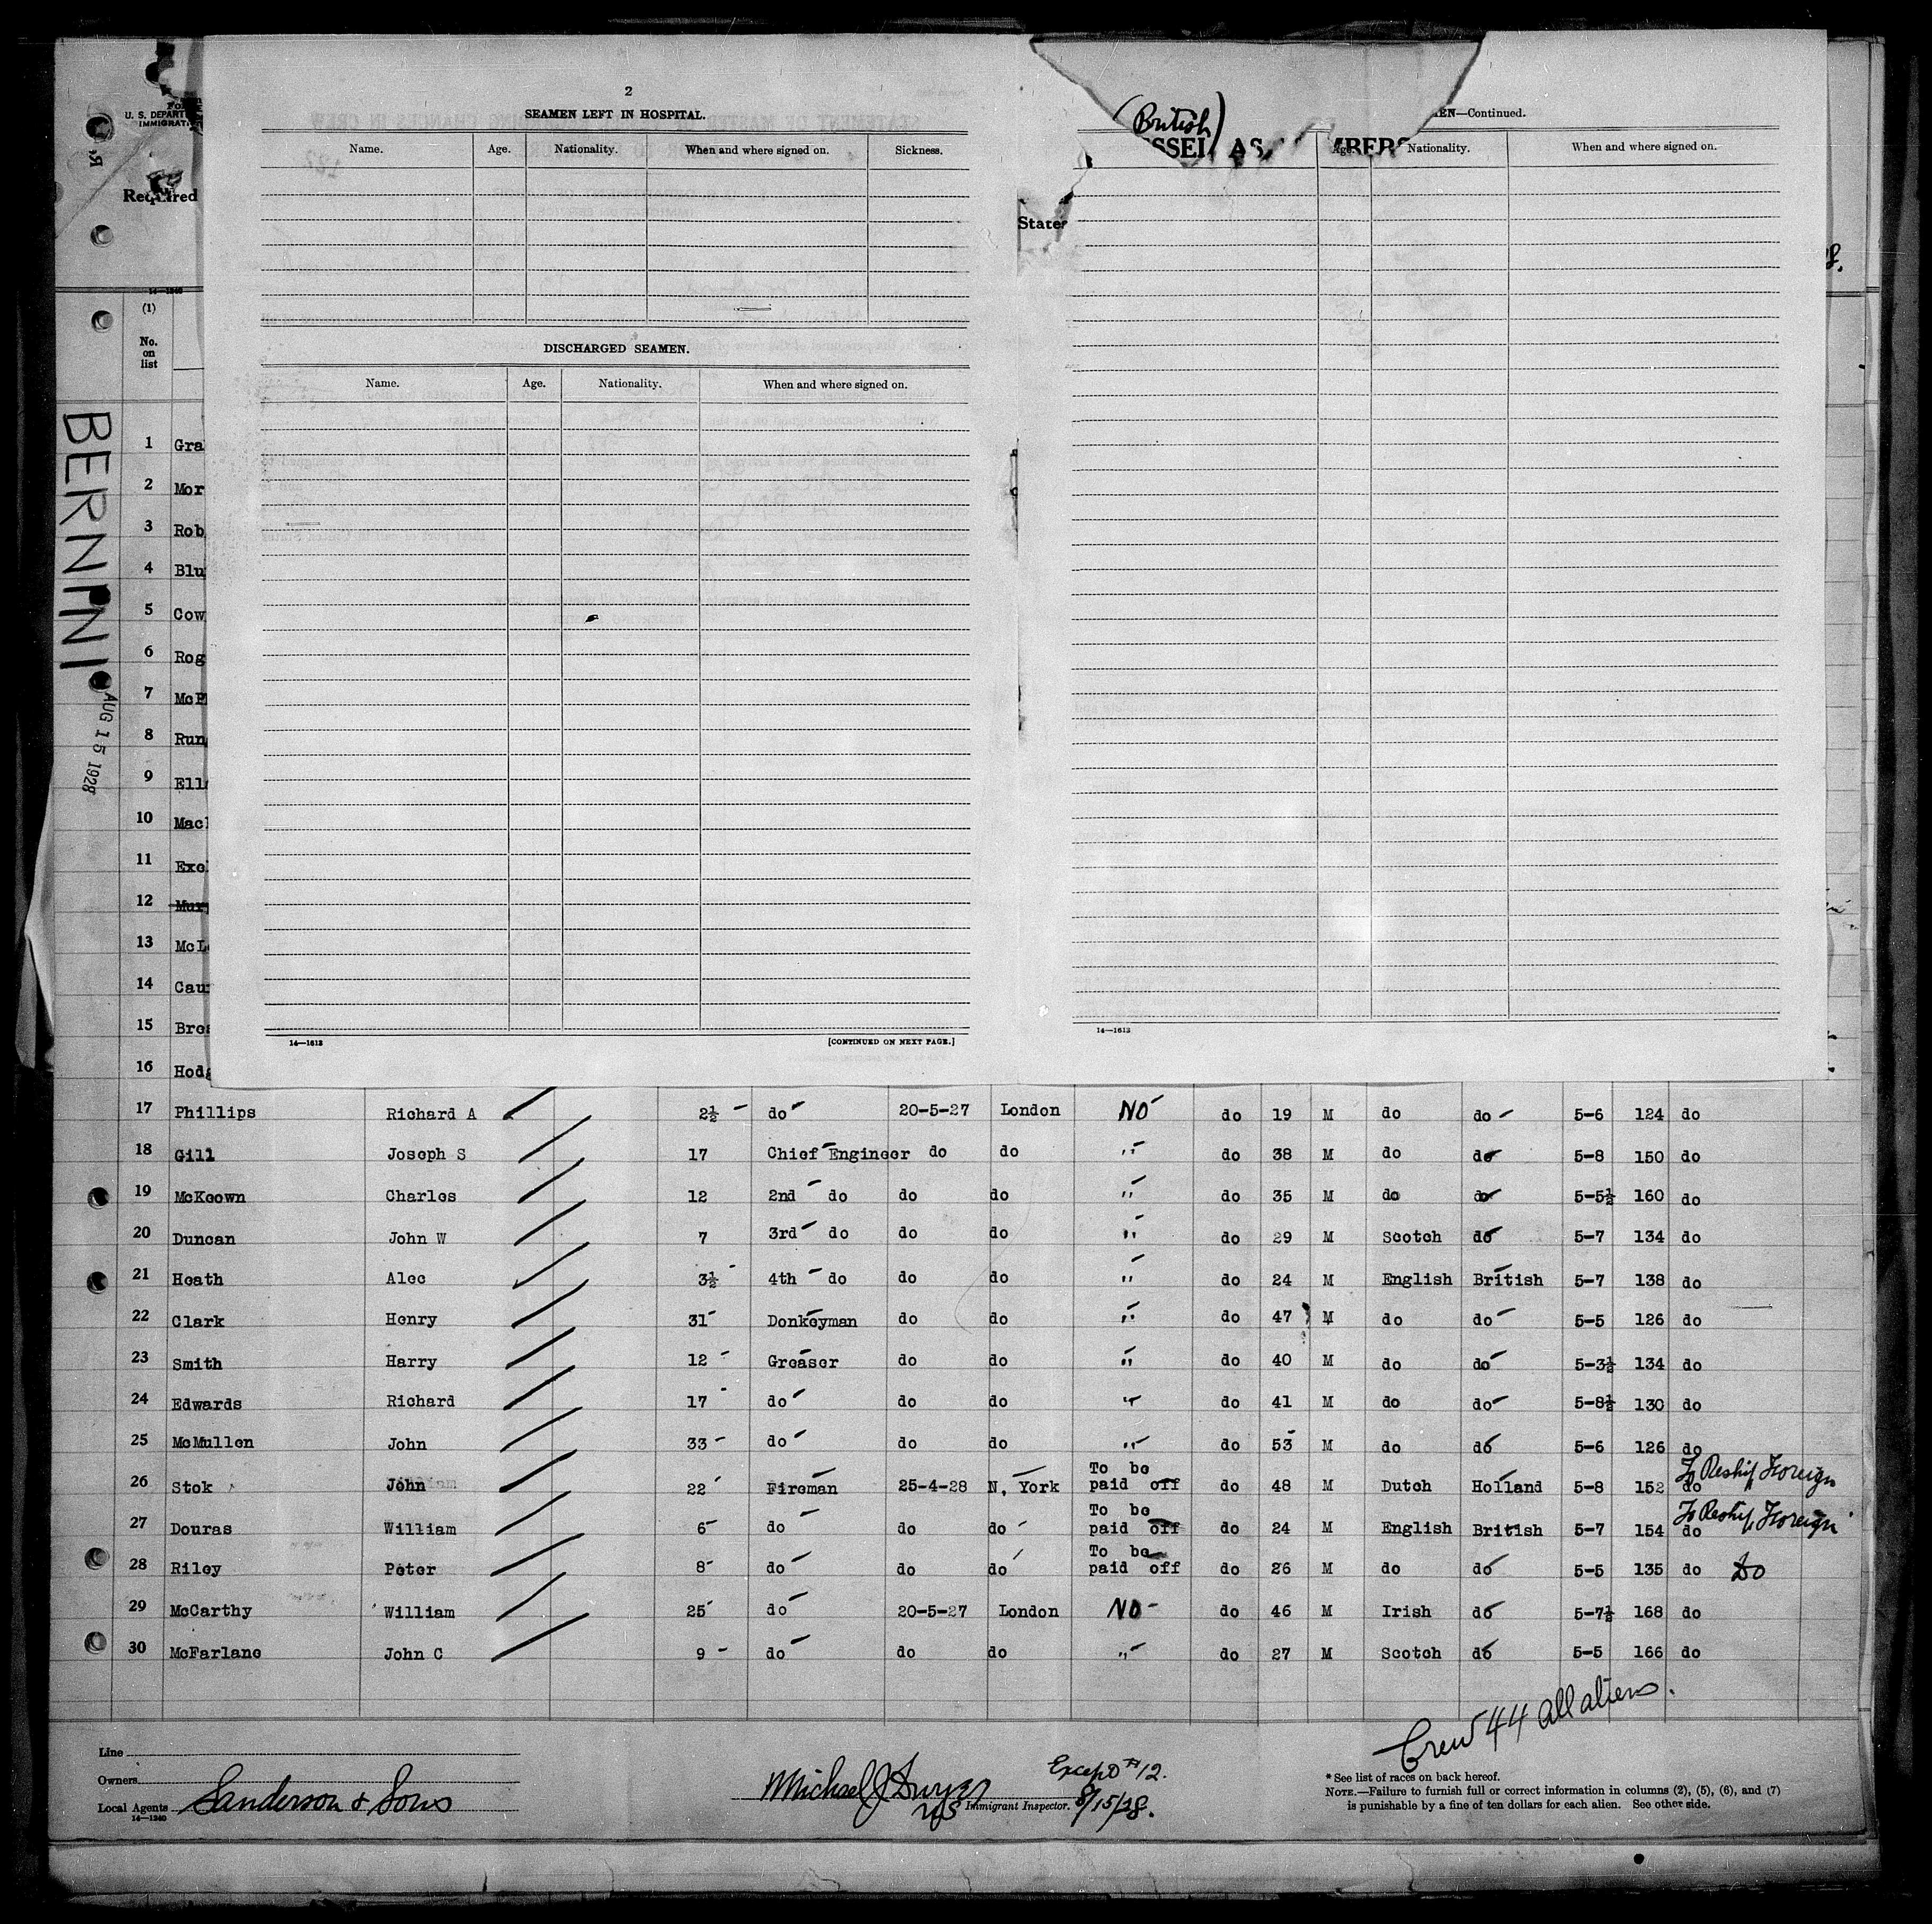 2
SEAMEN LEFT IN HOSPITAL.
Name. Age. Nationality. When and where signed on. Sickness.
DISCHARGED SEAMEN.
Name. Age. Nationality. When and where signed on.
14—1613 [CONTINUED ON NEXT PAGE.]
(British)
EN—Continued.
SSEL AS MBERS
Age. Nationality. When and where signed on.
14—1613
U. S. DEPART
IMMIGRAT
Required
States
14—1240
(1)
No.
on
list
BERNINI
AUG 15 1928
1 Gra
2 Mor
3 Rob
4 Blu
5 Cow
6 Rog
7 McP
8 Run
9 Ell
10 Mac
11 Exc
12 Mur
13 McL
14 Cau
15 Bre
16 Hodg
17 Phillips Richard A 2½ do 20-5-27 London NO do 19 M do do 5-6 124 do
18 Gill Joseph S 17 Chief Engineer do do " do 38 M do do 5-8 150 do
19 McKeown Charles 12 2nd do do do " do 35 M do do 5-5½ 160 do
20 Duncan John W 7 3rd do do do " do 29 M Scotch do 5-7 134 do
21 Heath Alec 3½ 4th do do do " do 24 M English British 5-7 138 do
22 Clark Henry 31 Donkeyman do do " do 47 M do do 5-5 126 do
23 Smith Harry 12 Greaser do do " do 40 M do do 5-3½ 134 do
24 Edwards Richard 17 do do do " do 41 M do do 5-8½ 130 do
25 McMullen John 33 do do do " do 53 M do do 5-6 126 do
26 Stok John 22 Fireman 25-4-28 N. York To be paid off do 48 M Dutch Holland 5-8 152 do To Reship Foreign
27 Douras William 6 do do do To be paid off do 24 M English British 5-7 154 do To Reship Foreign
28 Riley Peter 8 do do do To be paid off do 26 M do do 5-5 135 do Do
29 McCarthy William 25 do 20-5-27 London NO do 46 M Irish do 5-7½ 168 do
30 McFarlane John C 9 do do do " do 27 M Scotch do 5-5 166 do
Crew 44 All aliens.
Line
Owners
Local Agents Sanderson & Sons
14—1240
Michael J Dwyer
Except #12.
Immigrant Inspector. 8/15/28.
* See list of races on back hereof.
NOTE.—Failure to furnish full or correct information in columns (2), (5), (6), and (7)
is punishable by a fine of ten dollars for each alien. See other side.